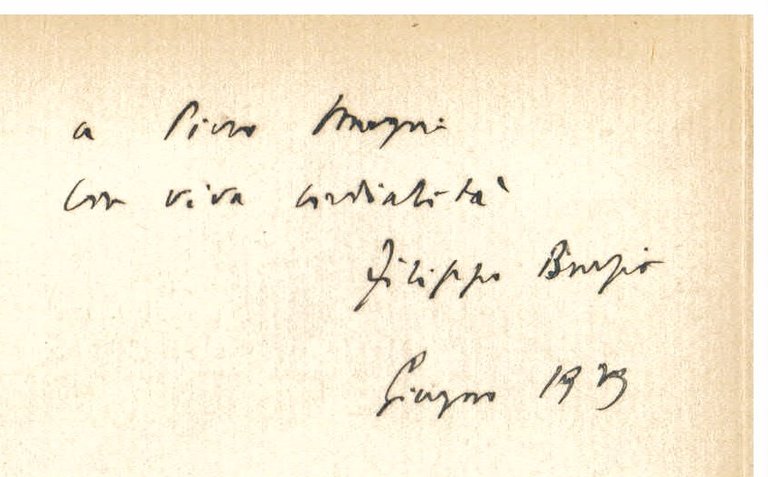 a Piero
con viva cordialità
Filippo Burzio
Giugno 1929